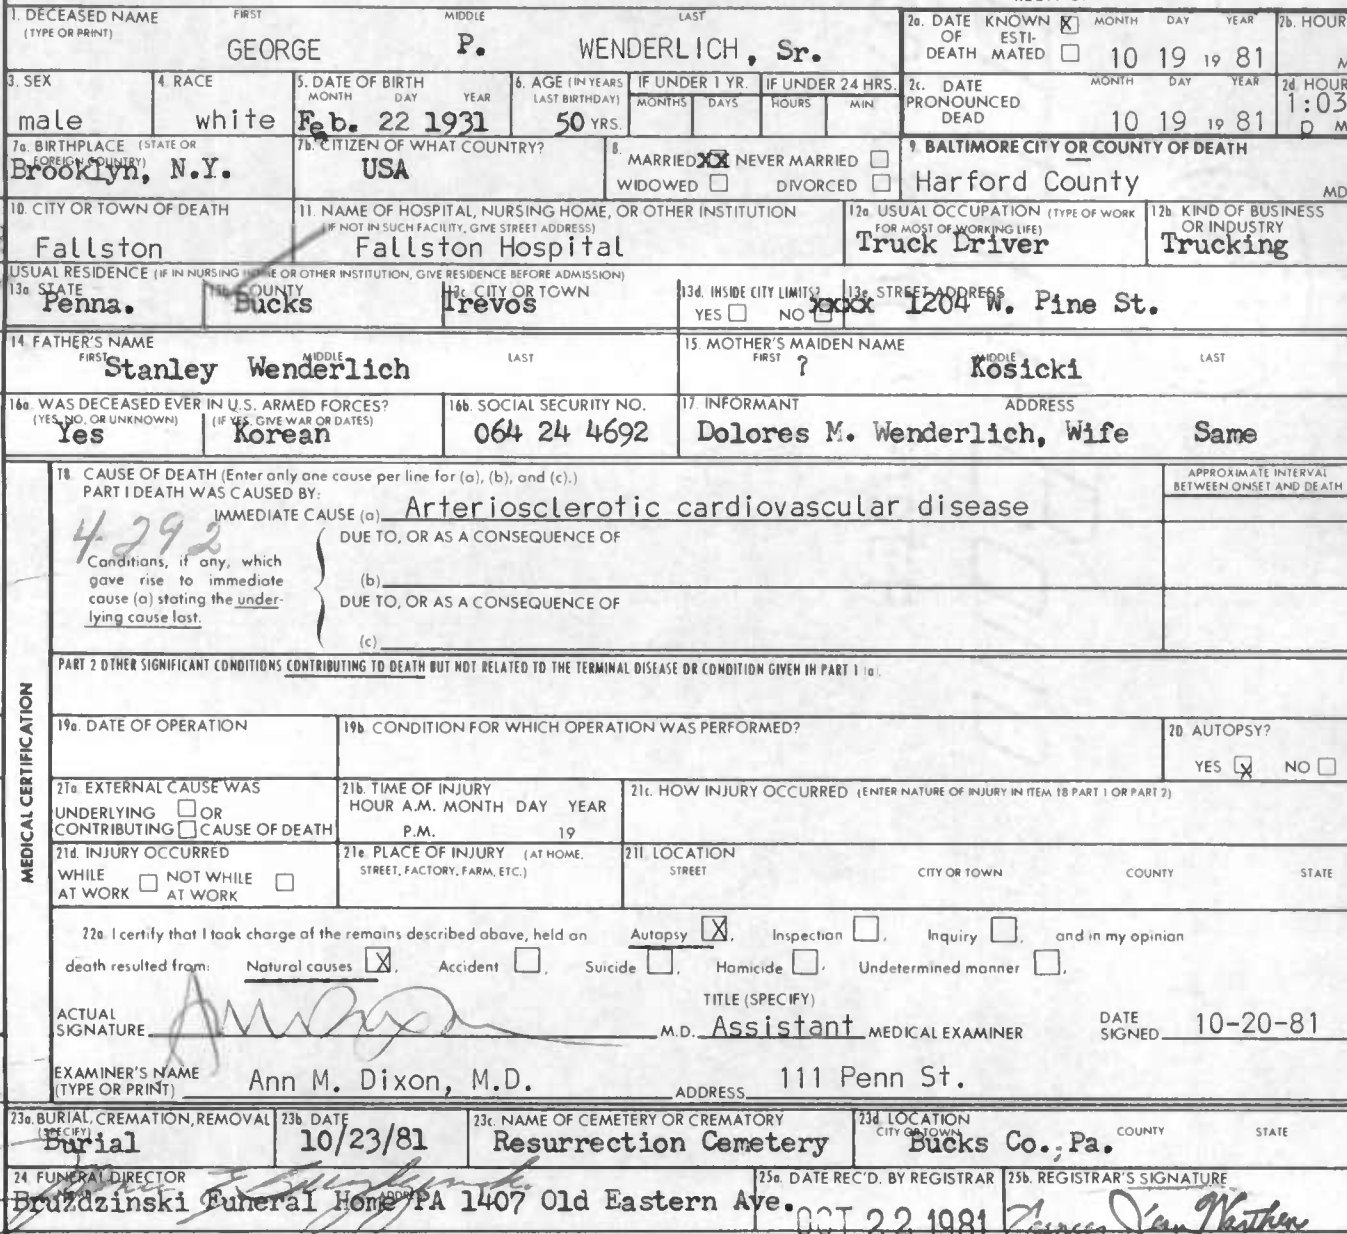 1. DECEASED NAME FIRST MIDDLE LAST
(TYPE OR PRINT)
GEORGE P. WENDERLICH, Sr.
2a. DATE KNOWN X MONTH DAY YEAR
OF ESTI-
DEATH MATED
10 19 19 81
2b. HOUR
M
3. SEX
male
4. RACE
white
5. DATE OF BIRTH
MONTH DAY YEAR
Feb. 22 1931
6. AGE (IN YEARS
LAST BIRTHDAY)
50 YRS.
IF UNDER 1 YR.
MONTHS DAYS
IF UNDER 24 HRS.
HOURS MIN
2c. DATE MONTH DAY YEAR
PRONOUNCED
DEAD
10 19 19 81
2d HOUR
1:03
p M
7a. BIRTHPLACE (STATE OR
FOREIGN COUNTRY)
Brooklyn, N.Y.
7b. CITIZEN OF WHAT COUNTRY?
USA
8.
MARRIED XX NEVER MARRIED
WIDOWED DIVORCED
9. BALTIMORE CITY OR COUNTY OF DEATH
Harford County MD
10. CITY OR TOWN OF DEATH
Fallston
11. NAME OF HOSPITAL, NURSING HOME, OR OTHER INSTITUTION
(IF NOT IN SUCH FACILITY, GIVE STREET ADDRESS)
Fallston Hospital
12a. USUAL OCCUPATION (TYPE OF WORK
FOR MOST OF WORKING LIFE)
Truck Driver
12b. KIND OF BUSINESS
OR INDUSTRY
Trucking
USUAL RESIDENCE (IF IN NURSING HOME OR OTHER INSTITUTION, GIVE RESIDENCE BEFORE ADMISSION)
13a. STATE
Penna.
13b. COUNTY
Bucks
13c. CITY OR TOWN
Trevos
13d. INSIDE CITY LIMITS?
YES NO xxxx
13e. STREET ADDRESS
1204 W. Pine St.
14. FATHER'S NAME
FIRST MIDDLE LAST
Stanley Wenderlich
15. MOTHER'S MAIDEN NAME
FIRST MIDDLE LAST
? Kosicki
16a. WAS DECEASED EVER IN U.S. ARMED FORCES?
(YES, NO, OR UNKNOWN) (IF YES, GIVE WAR OR DATES)
Yes Korean
16b. SOCIAL SECURITY NO.
064 24 4692
17. INFORMANT ADDRESS
Dolores M. Wenderlich, Wife Same
MEDICAL CERTIFICATION
18. CAUSE OF DEATH (Enter only one cause per line for (a), (b), and (c).)
PART I DEATH WAS CAUSED BY:
IMMEDIATE CAUSE (a) Arteriosclerotic cardiovascular disease
APPROXIMATE INTERVAL
BETWEEN ONSET AND DEATH
4-292
DUE TO, OR AS A CONSEQUENCE OF
Conditions, if any, which
gave rise to immediate
cause (a) stating the under-
lying cause last.
(b)
DUE TO, OR AS A CONSEQUENCE OF
(c)
PART 2 OTHER SIGNIFICANT CONDITIONS CONTRIBUTING TO DEATH BUT NOT RELATED TO THE TERMINAL DISEASE OR CONDITION GIVEN IN PART 1 (a).
19a. DATE OF OPERATION
19b. CONDITION FOR WHICH OPERATION WAS PERFORMED?
20. AUTOPSY?
YES X NO
21a. EXTERNAL CAUSE WAS
UNDERLYING OR
CONTRIBUTING CAUSE OF DEATH
21b. TIME OF INJURY
HOUR A.M. MONTH DAY YEAR
P.M. 19
21c. HOW INJURY OCCURRED (ENTER NATURE OF INJURY IN ITEM 18 PART 1 OR PART 2)
21d. INJURY OCCURRED
WHILE NOT WHILE
AT WORK AT WORK
21e. PLACE OF INJURY (AT HOME,
STREET, FACTORY, FARM, ETC.)
21f. LOCATION
STREET CITY OR TOWN COUNTY STATE
22a. I certify that I took charge of the remains described above, held an Autopsy X, Inspection , Inquiry , and in my opinion
death resulted from: Natural causes X, Accident , Suicide , Homicide , Undetermined manner ,
ACTUAL
SIGNATURE
TITLE (SPECIFY)
M.D. Assistant MEDICAL EXAMINER
DATE
SIGNED 10-20-81
EXAMINER'S NAME
(TYPE OR PRINT) Ann M. Dixon, M.D. ADDRESS 111 Penn St.
23a. BURIAL, CREMATION, REMOVAL
(SPECIFY)
Burial
23b. DATE
10/23/81
23c. NAME OF CEMETERY OR CREMATORY
Resurrection Cemetery
23d. LOCATION
CITY OR TOWN COUNTY STATE
Bucks Co., Pa.
24. FUNERAL DIRECTOR
Bruzdzinski Funeral Home PA 1407 Old Eastern Ave.
25a. DATE REC'D. BY REGISTRAR
OCT 22 1981
25b. REGISTRAR'S SIGNATURE